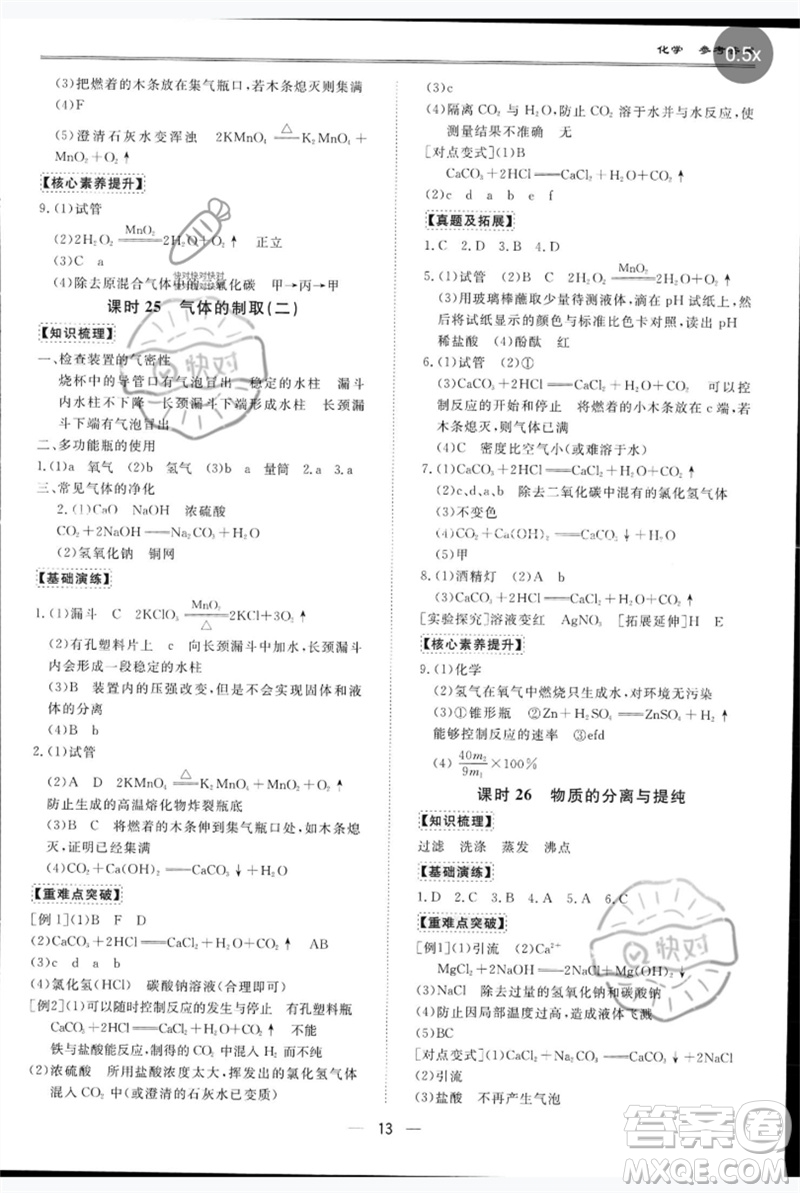 化学 参考
0.5x
(3)把燃着的木条放在集气瓶口,若木条熄灭则集满
(4)F
(5)澄清石灰水变浑浊 2KMnO₄ =△= K₂MnO₄ +
MnO₂ + O₂↑
【核心素养提升】
9.(1)试管
(2)2H₂O₂ =MnO₂= 2H₂O+O₂↑ 正立
(3)C a
(4)除去原混合气体中的二氧化碳 甲→丙→甲
课时 25 气体的制取(二)
【知识梳理】
一、检查装置的气密性
烧杯中的导管口有气泡冒出 稳定的水柱 漏斗
内水柱不下降 长颈漏斗下端形成水柱 长颈漏
斗下端有气泡冒出
二、多功能瓶的使用
1.(1)a 氧气 (2)b 氢气 (3)a 量筒 2.a 3.a
三、常见气体的净化
2.(1)CaO NaOH 浓硫酸
CO₂+2NaOH══Na₂CO₃+H₂O
(2)氢氧化钠 铜网
【基础演练】
1.(1)漏斗 C 2KClO₃ =MnO₂ △= 2KCl+3O₂↑
(2)有孔塑料片上 c 向长颈漏斗中加水,长颈漏
斗中会形成一段稳定的水柱
(3)B 装置内的压强改变,但是不利于固体和液
体的分离
(4)B b
2.(1)试管
(2)A D 2KMnO₄ =△= K₂MnO₄+MnO₂+O₂↑
防止生成的高温熔化物炸裂瓶底
(3)B c 将燃着的木条伸到集气瓶口处,如木条熄
灭,证明已经集满
(4)CO₂+Ca(OH)₂══CaCO₃↓+H₂O
【重难点突破】
[例1](1)B F D
(2)CaCO₃+2HCl══CaCl₂+H₂O+CO₂↑ AB
(3)c d a b
(4)氯化氢(HCl) 碳酸钠溶液(合理即可)
[例2](1)可以随时控制反应的发生与停止 有孔塑料瓶
CaCO₃+2HCl══CaCl₂+H₂O+CO₂↑ 不能
铁与盐酸能反应,制得的 CO₂ 中混入 H₂ 而不纯
(2)浓溶液 所用的盐酸浓度太大,挥发的氯化氢气体
混入 CO₂ 中(或澄清的石灰水已变质)
(3)c
(4)隔离 CO₂ 与水,防止 CO₂ 溶于水并与水反应,使
测量结果不准确 无
[对点变式](1)B
CaCO₃+2HCl══CaCl₂+H₂O+CO₂↑
(2)c d a b e f
【真题及拓展】
1.C 2.D 3.B 4.D
5.(1)试管 (2)2H₂O₂ =MnO₂= 2H₂O+O₂↑
(3)用玻璃棒蘸取少量待测液体,滴在 pH 试纸上,将
试纸显示的颜色与标准比色卡对照,读出 pH
稀盐酸 (4)酚酞 红
6.(1)试管 (2)①
(3)CaCO₃+2HCl══CaCl₂+H₂O+CO₂↑ 可以
控制反应的开始和停止 将燃着的小木条放在 c 端,若
木条熄灭,则气体已满
(4)C 密度比空气小(或难溶于水)
7.(1)CaCO₃+2HCl══CaCl₂+H₂O+CO₂↑
(2)c、d、a 除去二氧化碳中混有的氯化氢气体
(3)不变色
(4)CO₂+Ca(OH)₂══CaCO₃↓+H₂O
(5)甲
8.(1)酒精灯 (2)A b
[实验探究]溶液变红 AgNO₃ [拓展延伸]H E
【核心素养提升】
9.(1)化学
(2)氢气在氧气中燃烧只生成水,对环境无污染
(3)①锥形瓶 ②Zn+H₂SO₄══ZnSO₄+H₂↑
能够控制反应的速率 ③efd
(4) 40m₂/9m₁ ×100%
课时 26 物质的分离与提纯
【知识梳理】
过滤 洗涤 蒸发 沸点
【基础演练】
1.D 2.C 3.B 4.D 5.A 6.C
【重难点突破】
[例1](1)引流 (2)Ca²⁺
MgCl₂+2NaOH══Mg(OH)₂↓+2NaCl
(3)NaCl 除去过量的氢氧化钠和碳酸钠
(4)防止因局部温度过高,造成液滴飞溅
(5)BC
[对点变式](1)CaCl₂+Na₂CO₃══CaCO₃↓+2NaCl
(2)引流
(3)盐酸 不再产生气泡
13
快对
快对
答案圈
MXQE.COM